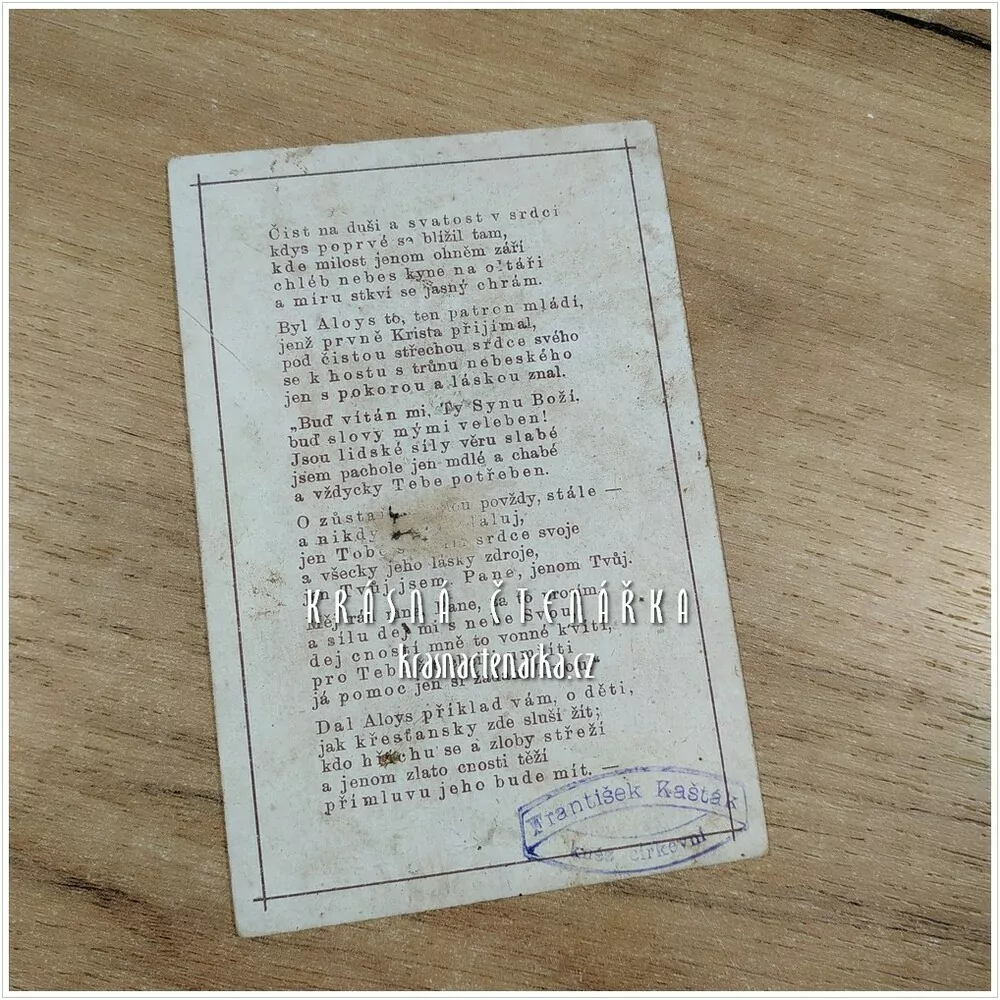 Čist na duši a svatost v srdci
kdys poprvé se blížil tam,
kde milost jenom ohněm září
chléb nebes kyne na oltáři
a míru stkví se jasný chrám.
Byl Aloys to, ten patron mládí,
jenž prvně Krista přijímal,
pod čistou střechou srdce svého
se k hostu s trůnu nebeského
jen s pokorou a láskou znal.
„Buď vítán mi, Ty Synu Boží,
buď slovy mými veleben!
Jsou lidské síly věru slabé
jsem pachole jen mdlé a chabé
a vždycky Tebe potřeben.
O povždy, stále —
a
jen srdce svoje
a všecky jeho lásky zdroje,
jen Tvůj jsem, Pane, jenom Tvůj.
KRÁSNÁ ČTENÁŘKA
a sílu dej mi s nebe
dej cností mně to vonné kvítí,
krasnactenarka.cz
pro
já pomoc jen si
Dal Aloys příklad vám, o děti,
jak křesťansky zde sluší žít;
kdo hříchu se a zloby střeží
a jenom zlato cnosti těží
přímluvu jeho bude mít. —
František Kašták
kněz církevní